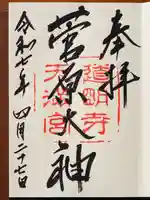 奉拝
道明寺
天満宮
菅原大神
令和七年 四月二十七日